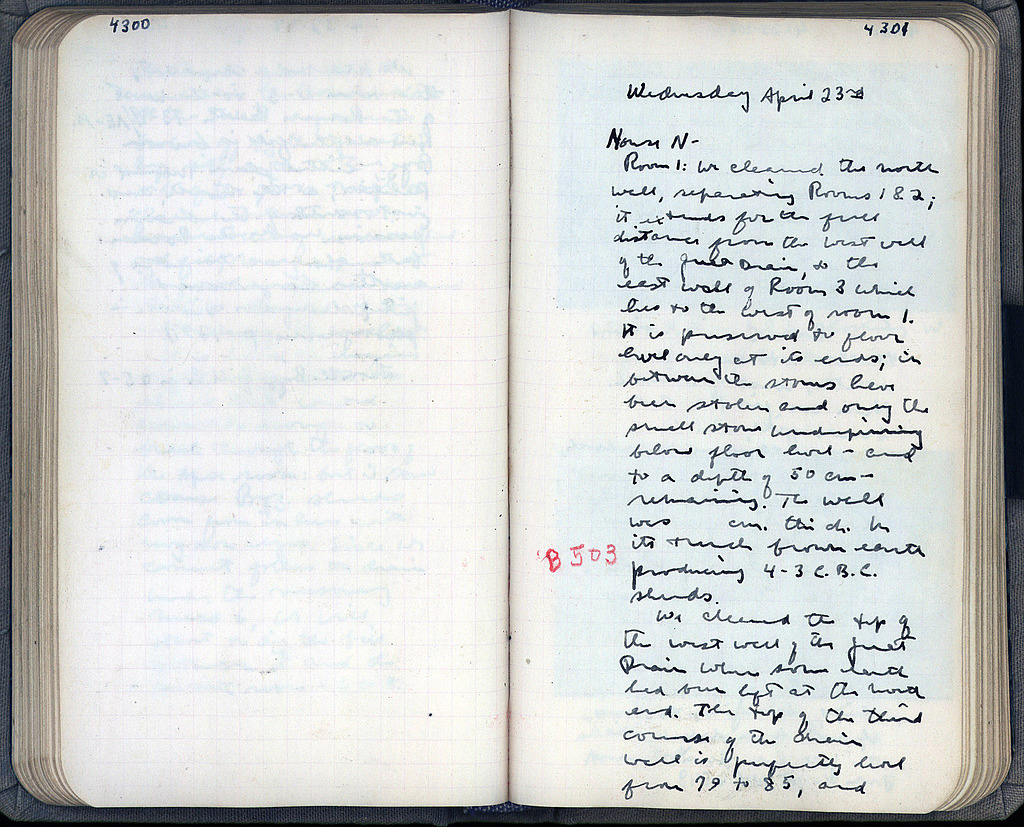 4300
4301
Wednesday April 23rd
House N-
Room 1: We cleaned the north
wall, separating Rooms 1 & 2;
it extends for the full
distance from the west wall
of the Great Drain, to the
east wall of Room 3 which
lies to the west of room 1.
It is preserved to floor
level only at its ends; in
between the stones have
been stolen and only the
small stone underpinning
below floor level - and
to a depth of 50 cm -
remaining. The wall
was cm. thick. In
its trench brown earth
B 503
producing 4-3 C. B.C.
sherds.
We cleaned the top of
the west wall of the Great
Drain where some earth
had been left at the north
end. The top of the third
course of the drain
wall is perfectly level
from 79 to 85, and